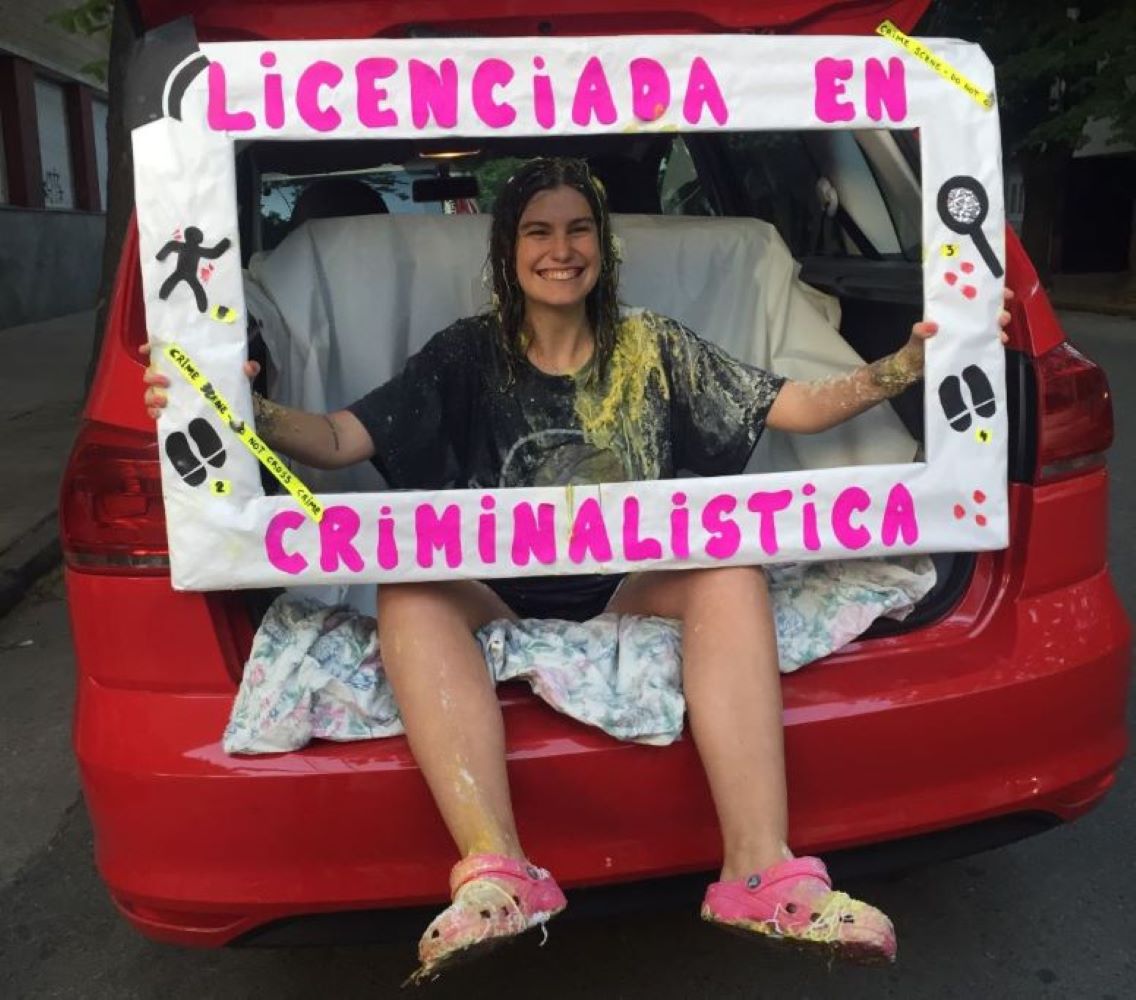 LiCENCiADA EN
CRIME SCENE - DO NOT
3
CRIME SCENE - DO NOT CROSS CRIME
2
4
CRiMiNALiSTiCA